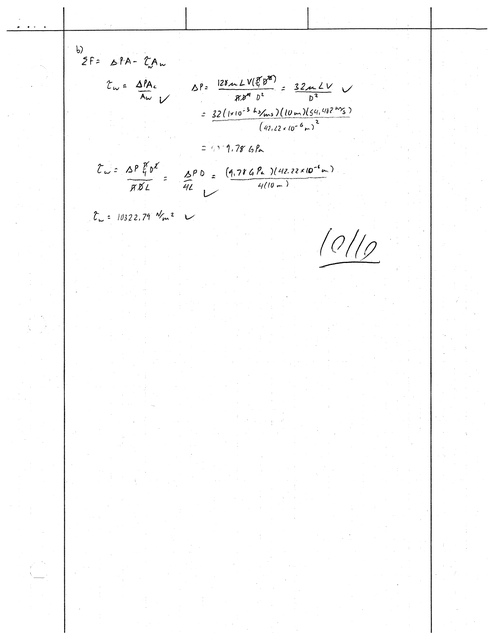 b)
ΣF= ΔPA - τwAw
τw = ΔPAc / Aw ✓ ΔP = 128μLV(π/4 D²) / πD⁴ D² = 32μLV / D² ✓
= 32(1×10⁻³ kg/ms)(10m)(54.482 m/s) / (42.22×10⁻⁶m)²
= 9.78 GPa
τw = ΔP π/4 D² / πDL = ΔPD / 4L ✓ = (9.78 GPa)(42.22×10⁻⁶m) / 4(10m)
τw = 10322.79 N/m² ✓
10/10